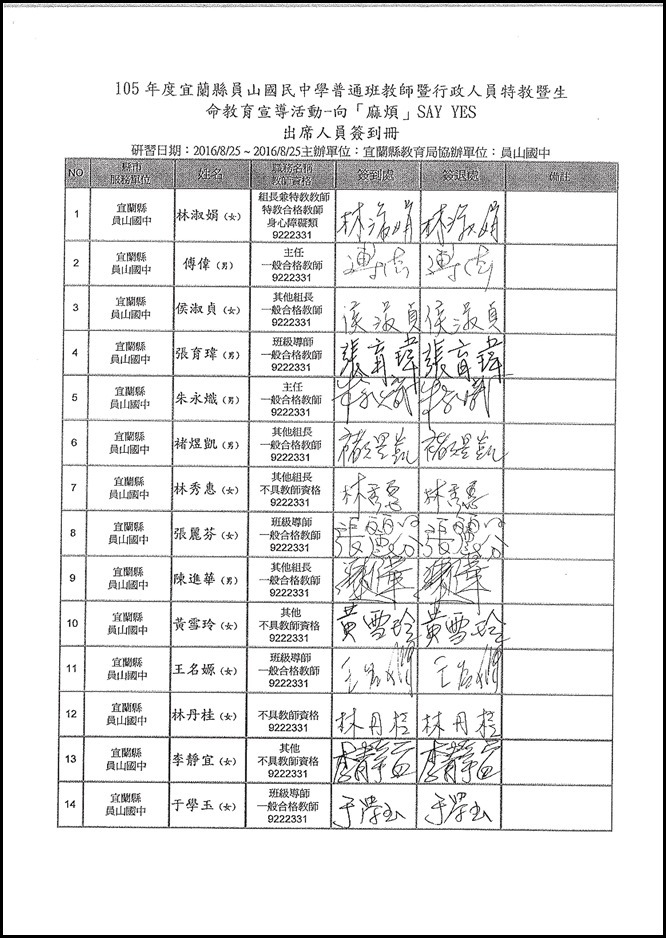 105 年度宜蘭縣員山國民中學普通班教師暨行政人員特教暨生
命教育宣導活動-向「麻煩」SAY YES
出席人員簽到冊
研習日期：2016/8/25 ~ 2016/8/25主辦單位：宜蘭縣教育局協辦單位：員山國中
NO 縣市 服務單位 姓名 職務名稱 教師資格 簽到處 簽退處 備註
1 宜蘭縣 員山國中 林淑娟（女） 組長兼特教教師 特教合格教師 身心障礙類 9222331 林淑娟 林淑娟
2 宜蘭縣 員山國中 傅偉（男） 主任 一般合格教師 9222331
3 宜蘭縣 員山國中 侯淑貞（女） 其他組長 一般合格教師 9222331 侯淑貞 侯淑貞
4 宜蘭縣 員山國中 張育瑋（男） 班級導師 一般合格教師 9222331 張育瑋 張育瑋
5 宜蘭縣 員山國中 朱永熾（男） 主任 一般合格教師 9222331
6 宜蘭縣 員山國中 褚煜凱（男） 其他組長 一般合格教師 9222331 褚煜凱 褚煜凱
7 宜蘭縣 員山國中 林秀惠（女） 其他組長 不具教師資格 9222331 林秀惠 林秀惠
8 宜蘭縣 員山國中 張麗芬（女） 班級導師 一般合格教師 9222331 張麗芬 張麗芬
9 宜蘭縣 員山國中 陳進華（男） 其他組長 一般合格教師 9222331
10 宜蘭縣 員山國中 黃雪玲（女） 其他 不具教師資格 9222331 黃雪玲 黃雪玲
11 宜蘭縣 員山國中 王名嫄（女） 班級導師 一般合格教師 9222331
12 宜蘭縣 員山國中 林丹桂（女） 不具教師資格 9222331 林丹桂 林丹桂
13 宜蘭縣 員山國中 李靜宜（女） 其他 不具教師資格 9222331 李靜宜 李靜宜
14 宜蘭縣 員山國中 于學玉（女） 班級導師 一般合格教師 9222331 于學玉 于學玉